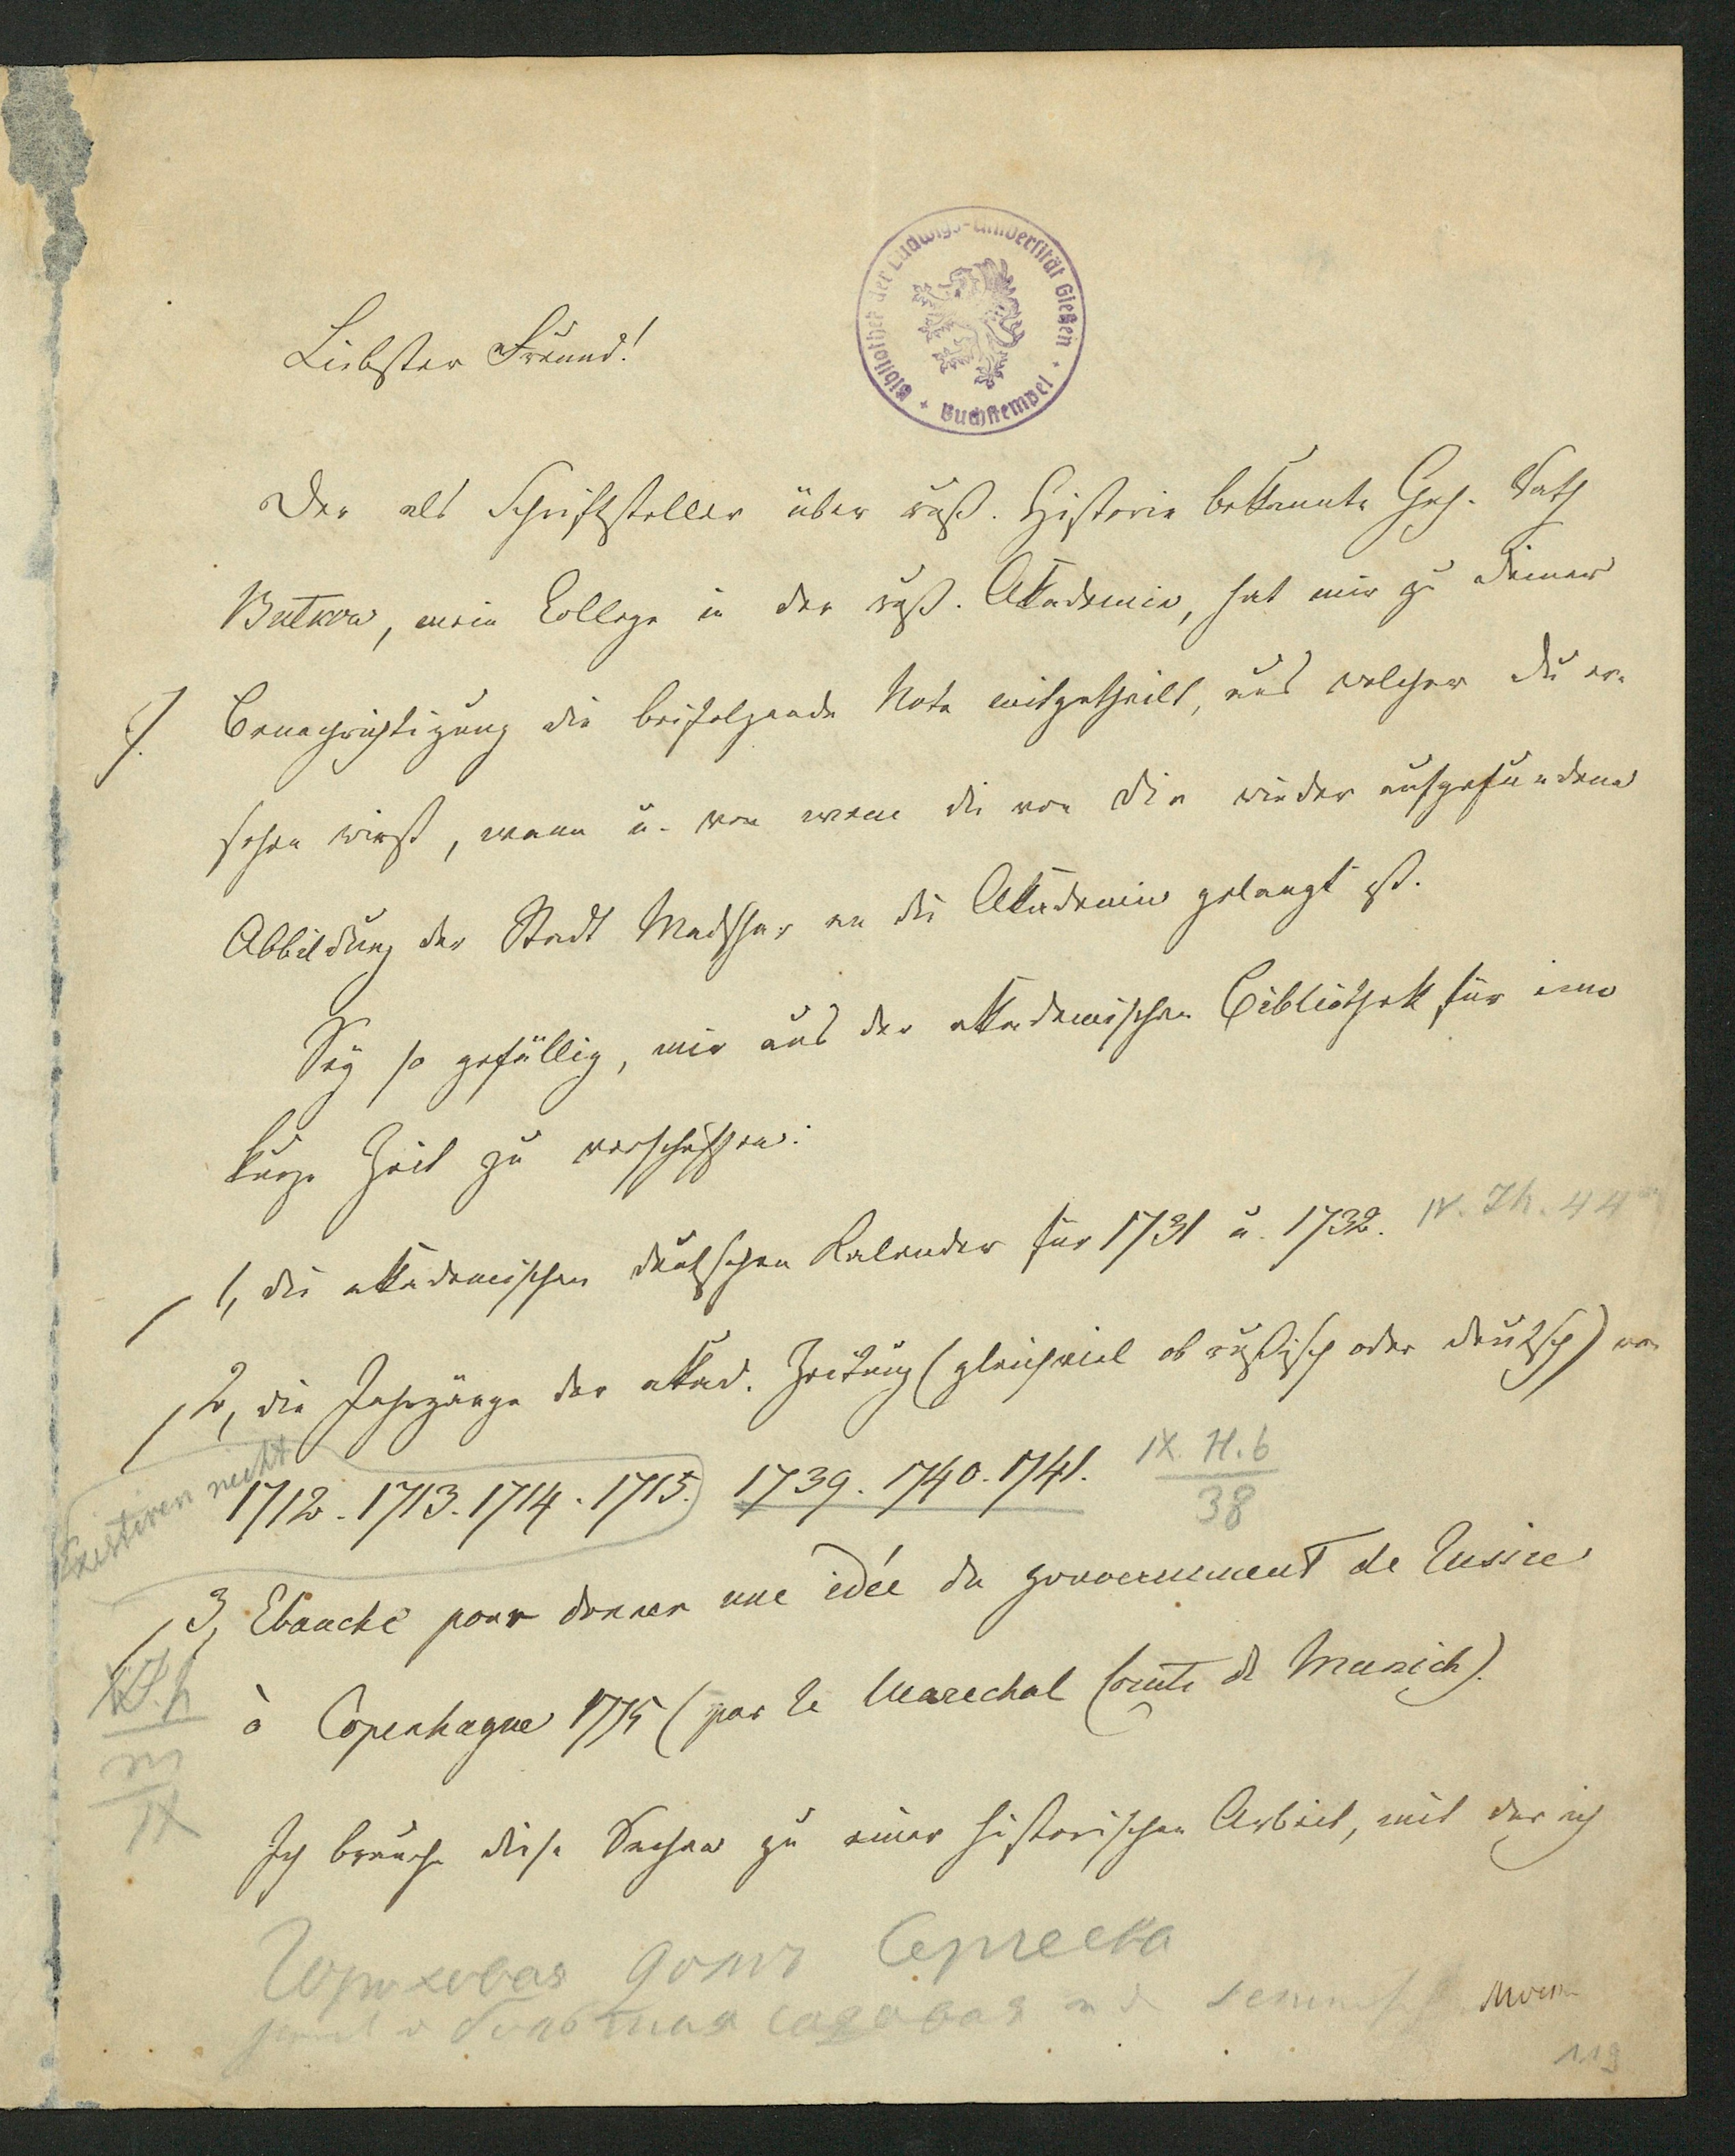 Bibliothek der Ludwigs-Universität Gießen
Buchstempel
Liebster Freund!
Der als Schriftsteller über ruß. Historie bekannte Geh. Rath
Butkow, mein College in der ruß. Akademie, hat mir zu Deiner
Benachrichtigung die beifolgende Note mitgetheilt, aus welcher Du er-
sehen wirst, wann u. von wem die von Dir wieder aufgefundene
Abbildung der Stadt Madshar an die Akademie gelangt ist.
Sey so gefällig, mir aus der akademischen Bibliothek für eine
kurze Zeit zu verschaffen:
1, die akademischen deutschen Kalender für 1731 u. 1732. IV. Th. 44
2, die Jahrgänge der akad. Zeitung (gleichviel ob rußisch oder deutsch) von
Existiren nicht
1712. 1713. 1714. 1715. 1739. 1740. 1741. IX. H. 6
38
3, Ebauche pour donner une idée du gouvernement de Russie
à Copenhague 1775 (par le Marechal Comte de Munich).
m
IX
Ich brauche diese Sachen zu einer historischen Arbeit, mit der ich
Гороховая домъ Сергеева
большая садовая
119